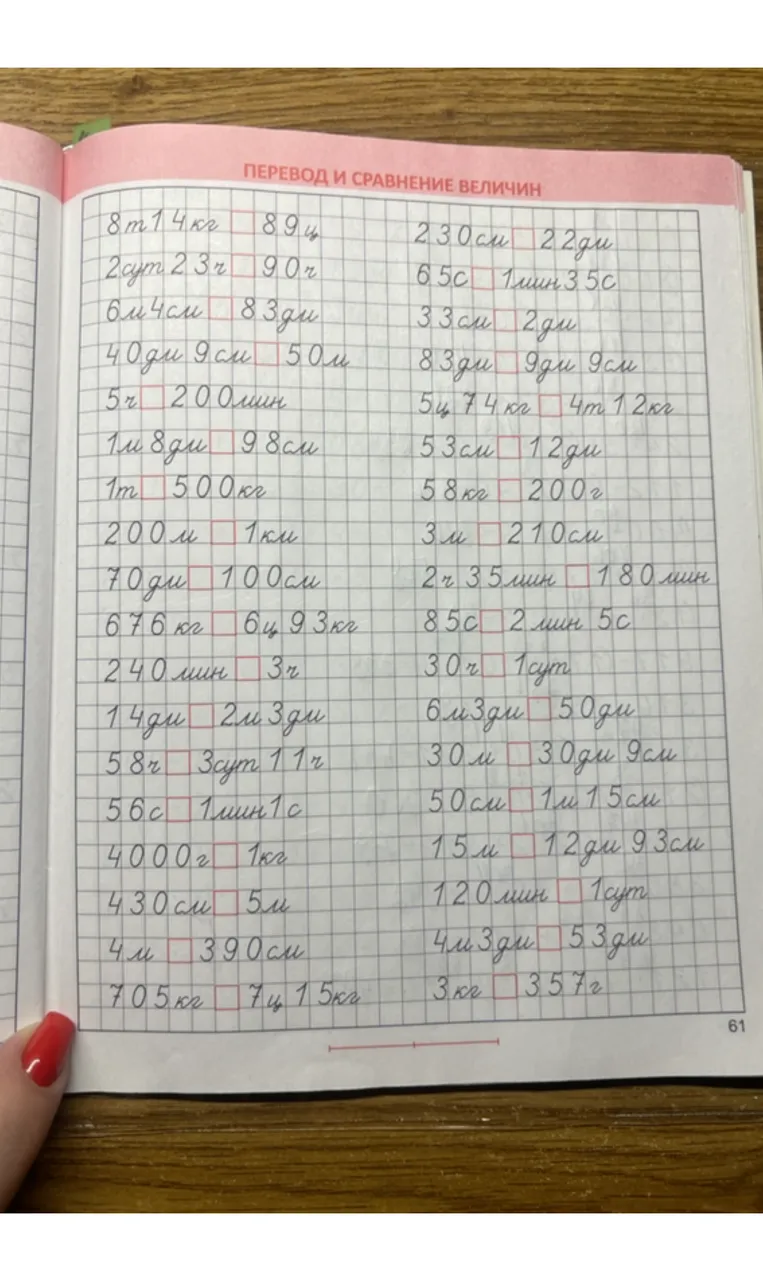 ПЕРЕВОД И СРАВНЕНИЕ ВЕЛИЧИН
8т14кг □ 89ц
2сут23ч □ 90ч
6м4см □ 83дм
40дм 9см □ 50м
5ч □ 200мин
1м 8дм □ 98см
1т □ 500кг
200м □ 1км
70дм □ 100см
676кг □ 6ц 93кг
240мин □ 3ч
14дм □ 2м3дм
58ч □ 3сут11ч
56с □ 1мин1с
4000г □ 1кг
430см □ 5м
4м □ 390см
705кг □ 7ц15кг
230см □ 22дм
65с □ 1мин35с
33см □ 2дм
83дм □ 9дм 9см
5ц 74кг □ 4т12кг
53см □ 12дм
58кг □ 200г
3м □ 210см
2ч 35мин □ 180мин
85с □ 2мин 5с
30ч □ 1сут
6м3дм □ 50дм
30м □ 30дм 9см
50см □ 1м15см
15м □ 12дм 93см
120мин □ 1сут
4м3дм □ 53дм
3кг □ 357г
61